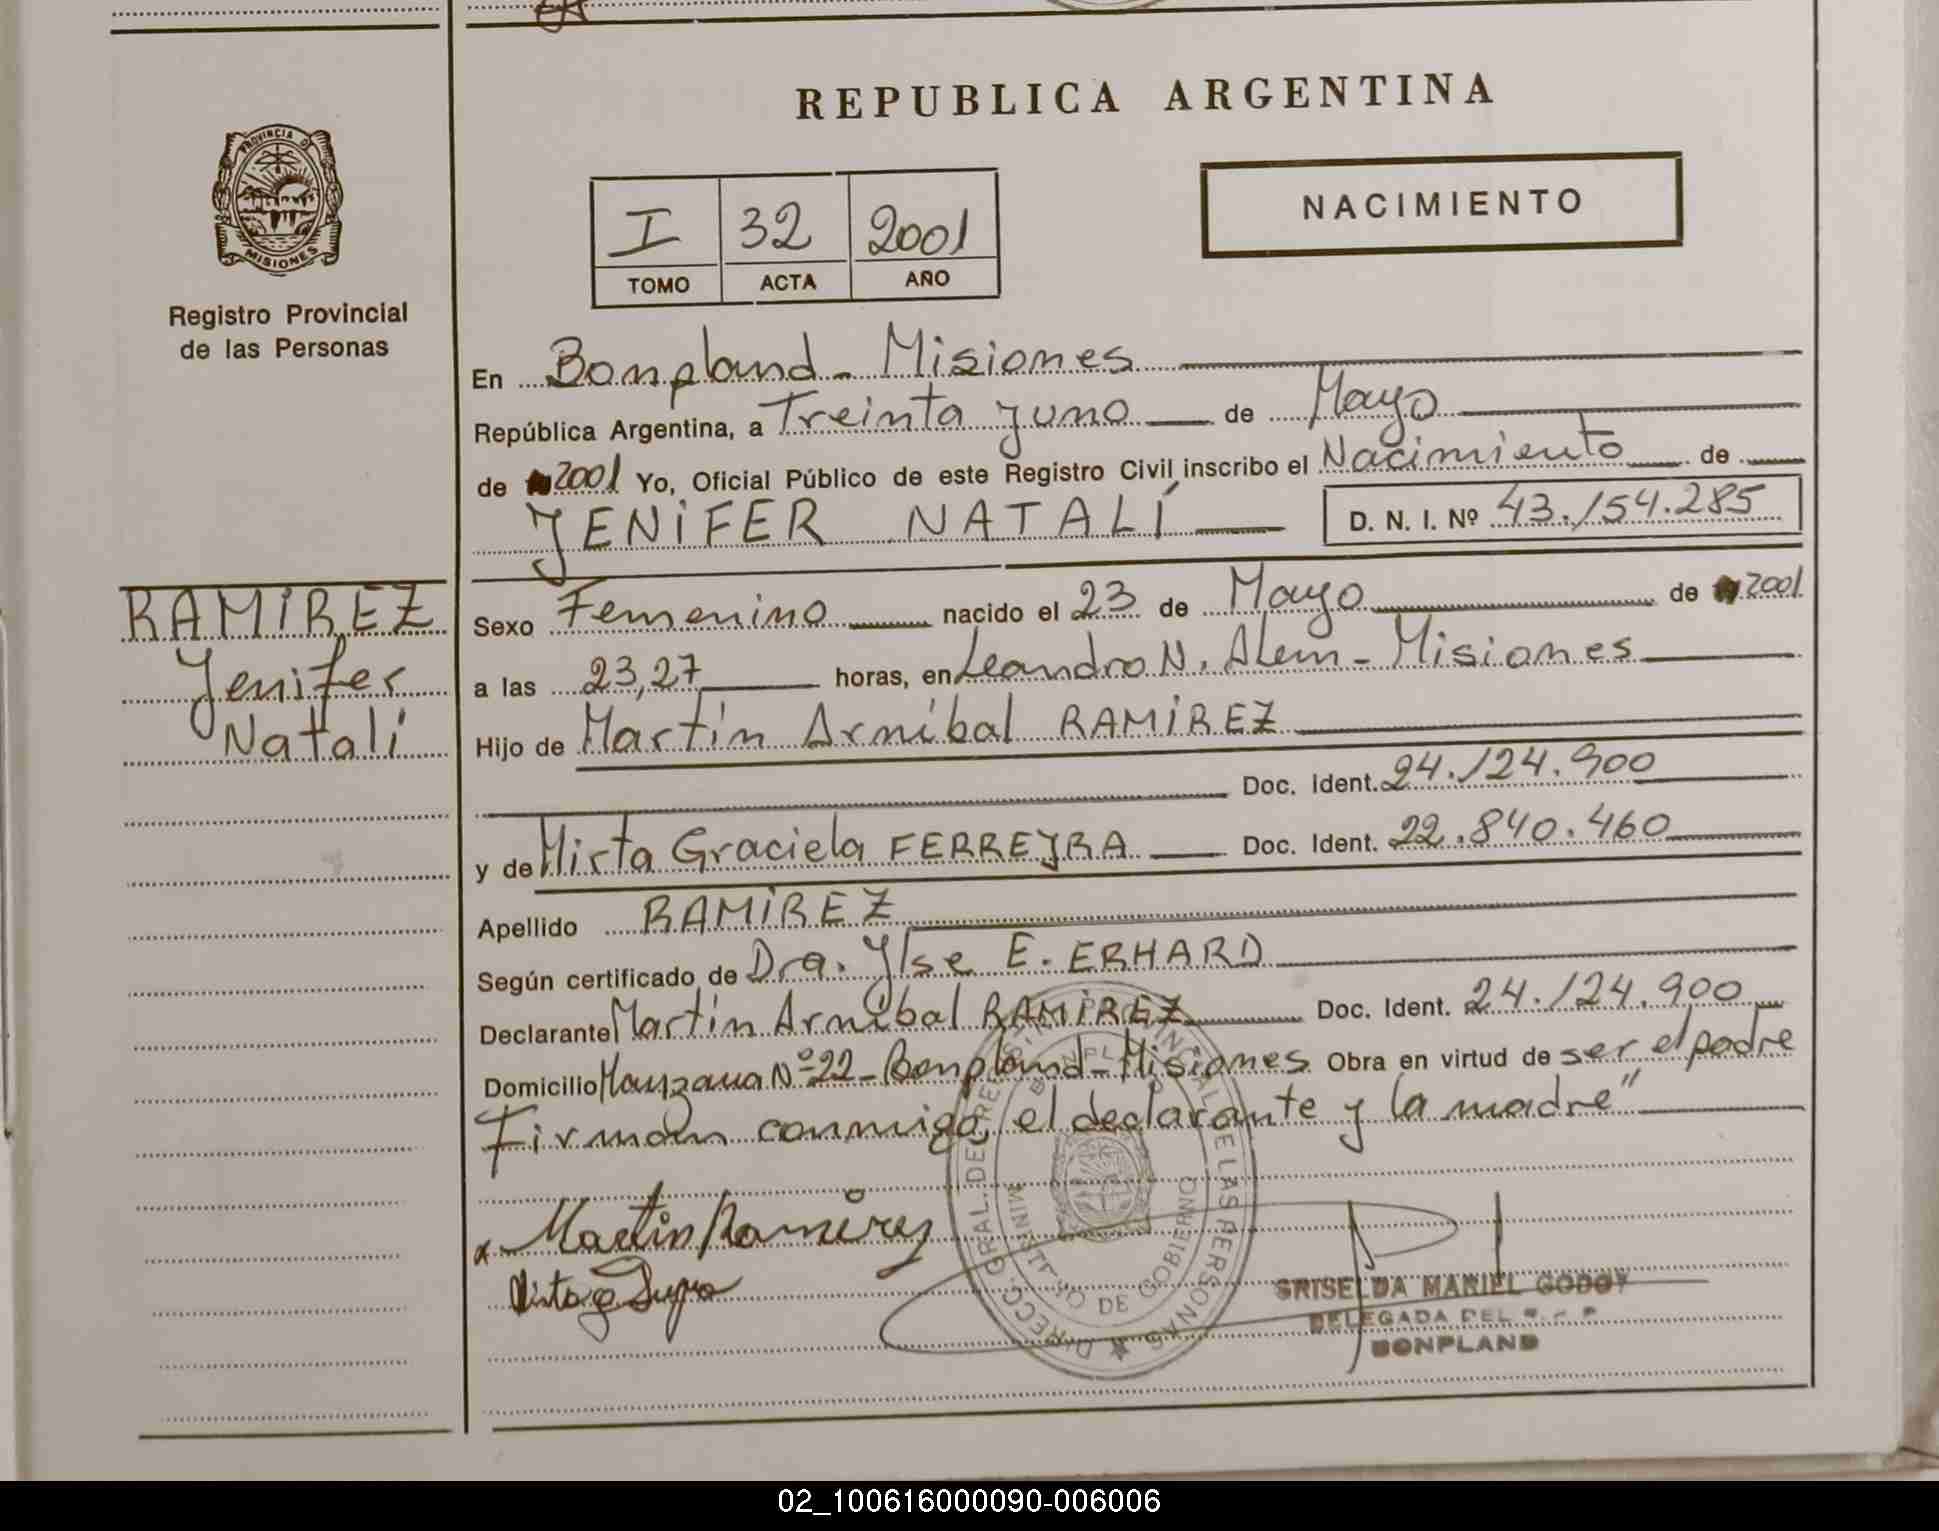 REPUBLICA ARGENTINA
PROVINCIA DE
MISIONES
Registro Provincial
de las Personas
I 32 2001
TOMO ACTA AÑO
NACIMIENTO
En Bonpland - Misiones
República Argentina, a Treinta y uno de Mayo
de 2001 Yo, Oficial Público de este Registro Civil inscribo el Nacimiento de
JENIFER NATALÍ D. N. I. Nº 43.154.285
RAMIREZ
Jenifer
Natalí
Sexo Femenino nacido el 23 de Mayo de 2001
a las 23,27 horas, en Leandro N. Alem - Misiones
Hijo de Martín Arníbal RAMIREZ
Doc. Ident. 24.124.900
y de Mirta Graciela FERREYRA Doc. Ident. 22.840.460
Apellido RAMIREZ
Según certificado de Dra. Ylse E. ERHARD
Declarante Martín Arníbal RAMIREZ Doc. Ident. 24.124.900
Domicilio Manzana Nº 22 - Bonpland - Misiones Obra en virtud de ser el padre
Firman conmigo, el declarante y la madre"
Martin Ramirez
DIRECC. GRAL. DEL REG. PROVINCIAL DE LAS PERSONAS
BONPLAND
MINISTERIO DE GOBIERNO
GRISELDA MARIEL GODOY
DELEGADA DEL R. P. P.
BONPLAND
02_100616000090-006006